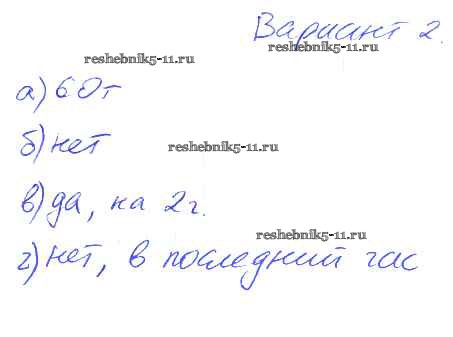 Вариант 2.
reshebnik5-11.ru
а) 60т
б) нет
reshebnik5-11.ru
в) да, на 2г.
reshebnik5-11.ru
г) нет, в последний час